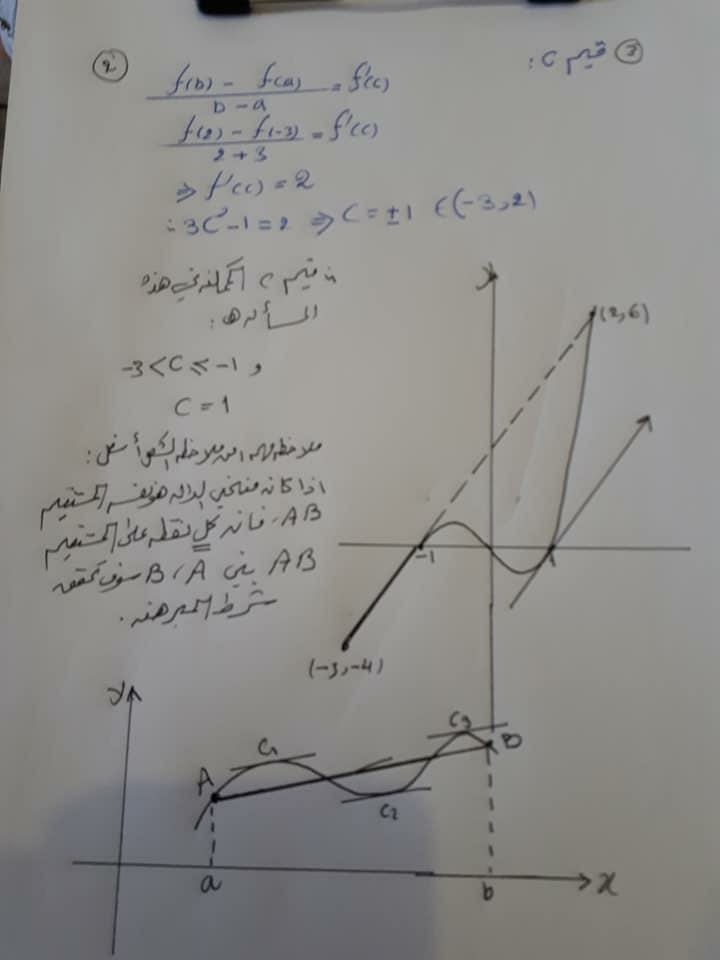 ② قيم C :
f(b) - f(a) / b - a = f'(c)
f(2) - f(-3) / 2 + 3 = f'(c)
⇒ f'(c) = 2
∴ 3C² - 1 = 2 ⇒ C = ±1 ∈ (-3, 2)
∴ قيم C الممكنة في هذه
المسألة هي :
-3 < C ≤ -1 و
C = 1
ملاحظة مهمة من ملاحظة الشكل أسفل :
اذا كان منحني الدالة هو نفسه المستقيم
AB، فانه كل نقطة على المستقيم
AB بين A، B سوف تحقق
شرط المبرهنة.
y
(2, 6)
-1
1
(-3, -4)
y
A
C1
C2
C3
B
a
b
x